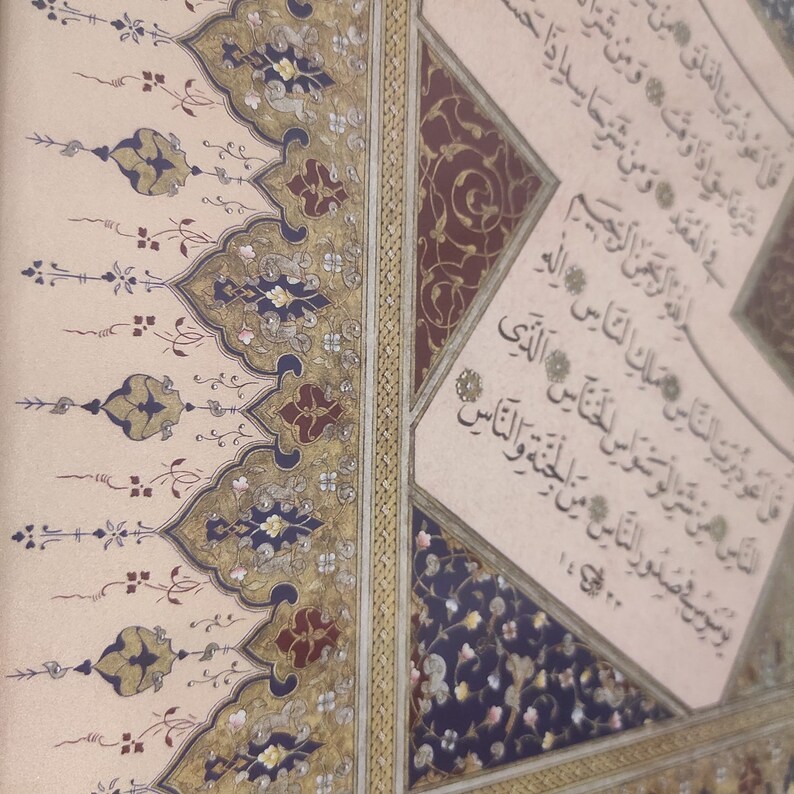 قُلْ أَعُوذُ بِرَبِّ الْفَلَقِ ۝ مِنْ
شَرِّ غَاسِقٍ إِذَا وَقَبَ ۝ وَمِنْ شَرِّ
فِي الْعُقَدِ ۝ وَمِنْ شَرِّ حَاسِدٍ إِذَا حَسَدَ
اللَّهِ الرَّحْمَٰنِ الرَّحِيمِ
قُلْ أَعُوذُ بِرَبِّ النَّاسِ ۝ مَلِكِ النَّاسِ ۝ إِلَٰهِ
النَّاسِ ۝ مِنْ شَرِّ الْوَسْوَاسِ الْخَنَّاسِ ۝ الَّذِي
يُوَسْوِسُ فِي صُدُورِ النَّاسِ ۝ مِنَ الْجِنَّةِ وَالنَّاسِ ۝
١٤ ٢٢